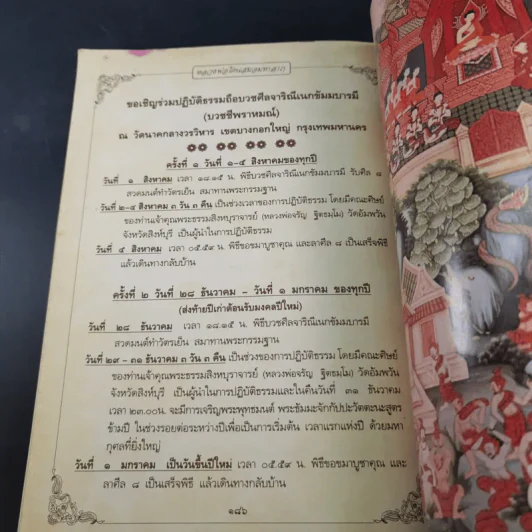 ขอเชิญร่วมปฏิบัติธรรมถือบวชศีลจาริณีเนกขัมมบารมี
(บวชชีพราหมณ์)
ณ วัดนาคกลางวรวิหาร เขตบางกอกใหญ่ กรุงเทพมหานคร
ครั้งที่ ๑ วันที่ ๑-๔ สิงหาคมของทุกปี
วันที่ ๑ สิงหาคม เวลา ๑๘.๑๕ น. พิธีบวชศีลจาริณีเนกขัมมบารมี รับศีล ๘
สวดมนต์ทำวัตรเย็น สมาทานพระกรรมฐาน
วันที่ ๒-๔ สิงหาคม ๓ วัน ๓ คืน เป็นช่วงเวลาของการปฏิบัติธรรม โดยมีคณะศิษย์
ของท่านเจ้าคุณพระธรรมสิงหบุราจารย์ (หลวงพ่อจรัญ ฐิตธมฺโม) วัดอัมพวัน
จังหวัดสิงห์บุรี เป็นผู้นำในการปฏิบัติธรรม
วันที่ ๔ สิงหาคม เวลา ๐๕.๕๙ น. พิธีขอขมาบูชาคุณ และลาศีล ๘ เป็นเสร็จพิธี
แล้วเดินทางกลับบ้าน
ครั้งที่ ๒ วันที่ ๒๘ ธันวาคม - วันที่ ๑ มกราคม ของทุกปี
(ส่งท้ายปีเก่าต้อนรับมงคลปีใหม่)
วันที่ ๒๘ ธันวาคม เวลา ๑๘.๑๕ น. พิธีบวชศีลจาริณีเนกขัมมบารมี
สวดมนต์ทำวัตรเย็น สมาทานพระกรรมฐาน
วันที่ ๒๙ - ๓๑ ธันวาคม ๓ วัน ๓ คืน เป็นช่วงของการปฏิบัติธรรม โดยมีคณะศิษย์
ของท่านเจ้าคุณพระธรรมสิงหบุราจารย์ (หลวงพ่อจรัญ ฐิตธมฺโม) วัดอัมพวัน
จังหวัดสิงห์บุรี เป็นผู้นำในการปฏิบัติธรรมและในคืนวันที่ ๓๑ ธันวาคม
เวลา ๒๓.๐๐น. จะมีการเจริญพระพุทธมนต์ พระธัมมะจักกัปปะวัตตะนะสูตร
ข้ามปี ในช่วงรอยต่อระหว่างปีเพื่อเป็นการเริ่มต้น เวลาแรกแห่งปี ด้วยมหา
กุศลที่ยิ่งใหญ่
วันที่ ๑ มกราคม เป็นวันขึ้นปีใหม่ เวลา ๐๕.๕๙ น. พิธีขอขมาบูชาคุณ และ
ลาศีล ๘ เป็นเสร็จพิธี แล้วเดินทางกลับบ้าน
๑๘๖